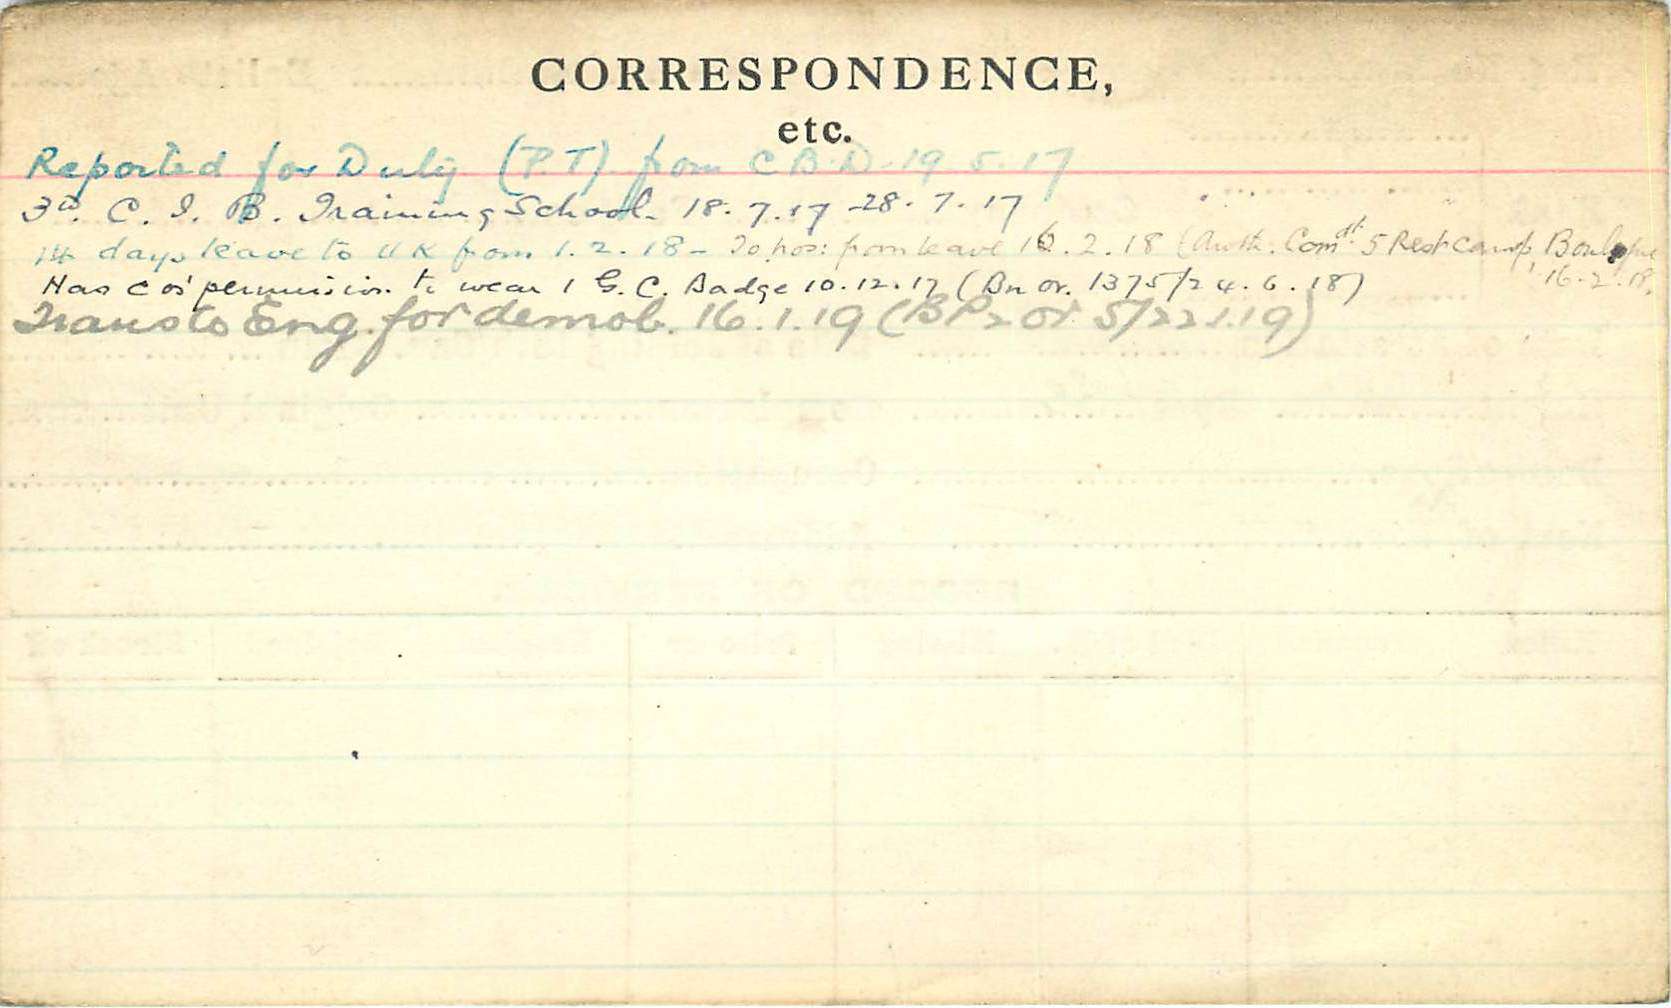 CORRESPONDENCE,
etc.
Reported for Duty (P.T). from C B.D. 19.5.17
3rd. C. I. B. Training School. 18.7.17 - 28.7.17
14 days leave to U K from 1.2.18 - To hos: from leave 16.2.18 (Auth: Comdt. 5 Rest Camp, Boulogne 16.2.18.
Has C os' permission to wear 1 G.C. Badge 10.12.17 (Bn Or. 1375/24.6.18)
Trans to Eng. for demob. 16.1.19 (BP2 or 5/22.1.19)